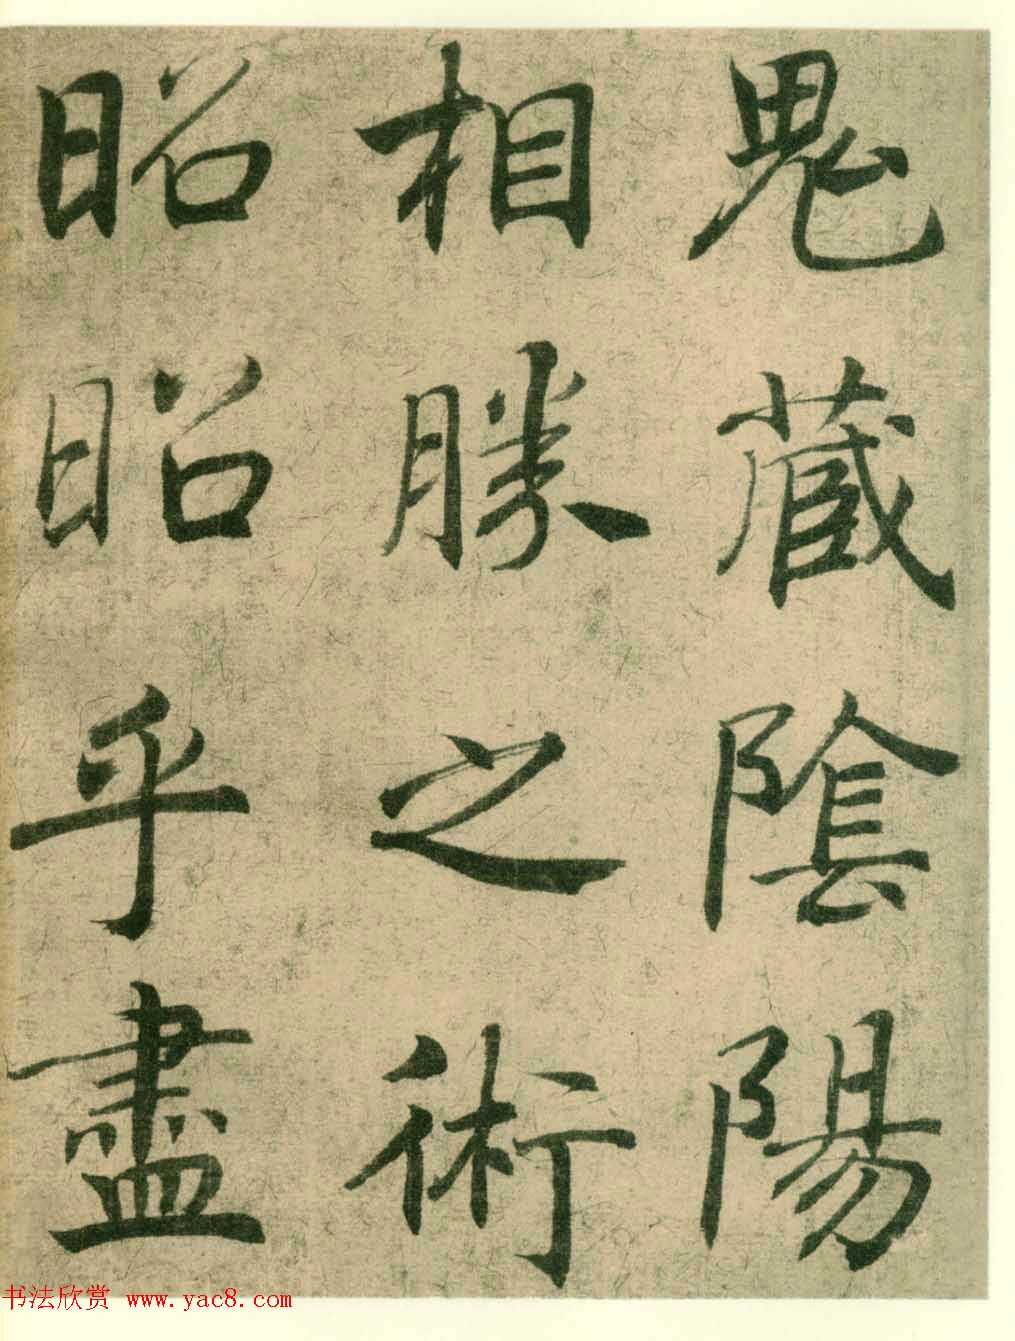 鬼藏陰陽
相勝之術
昭昭乎盡
书法欣赏 www.yac8.com